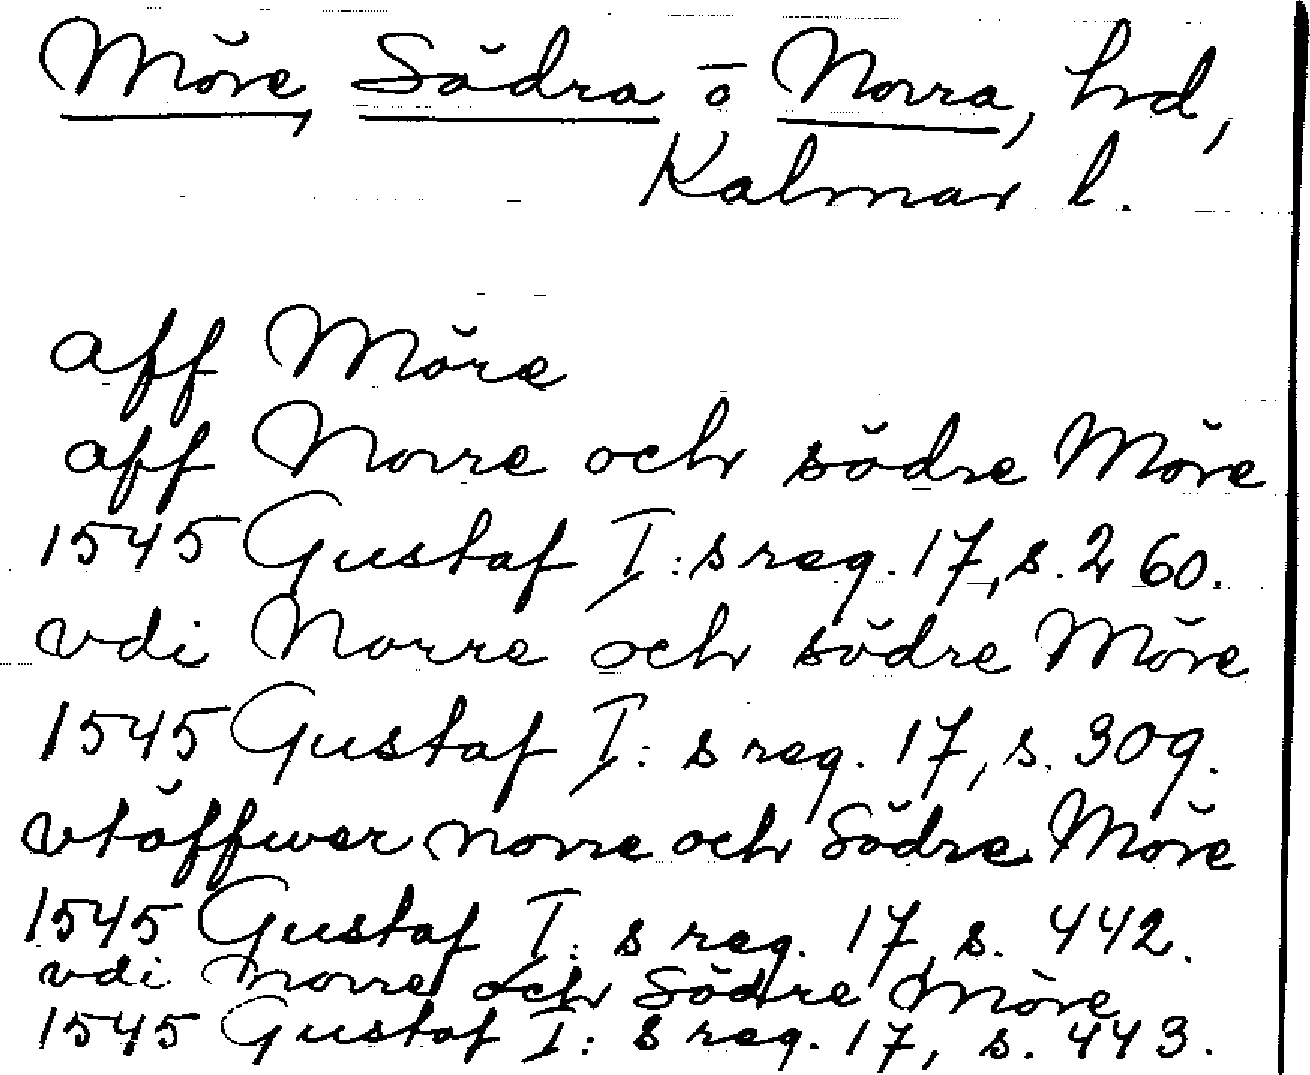 Möre, Södra o Norra, hd,
Kalmar l.
aff Möre
aff Norre och södre Möre
1545 Gustaf I:s reg. 17, s. 260.
vdi Norre och södre Möre
1545 Gustaf I:s reg. 17, s. 309.
vtöffwer norre och Södre Möre
1545 Gustaf I:s reg. 17, s. 442.
vdi norre och Södre Möre
1545 Gustaf I:s reg. 17, s. 443.